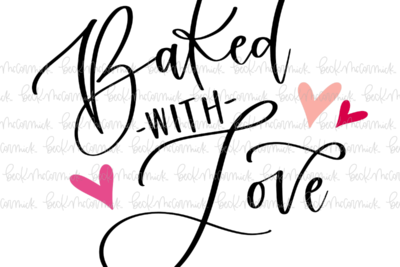 Baked
-WITH-
Love